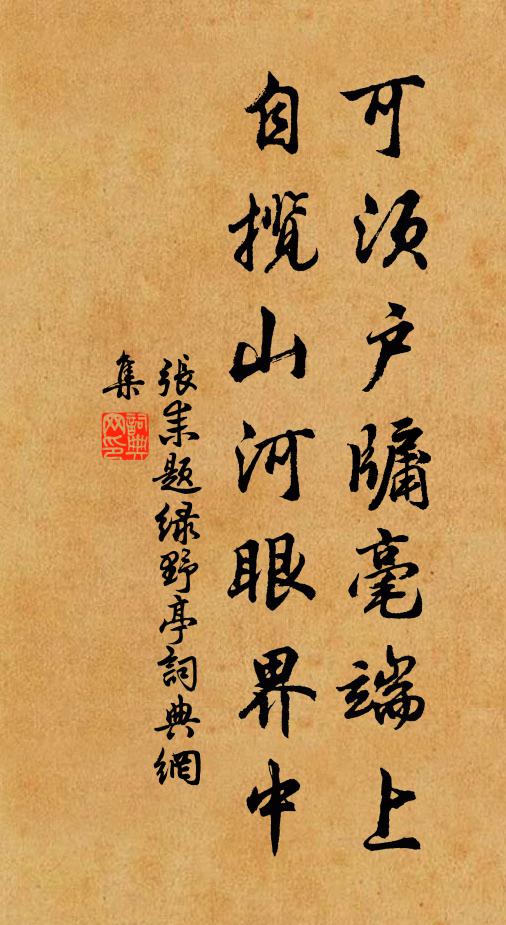 可须户牖毫端上
自揽山河眼界中
張耒題绿野亭詞典網
集
詞典网印